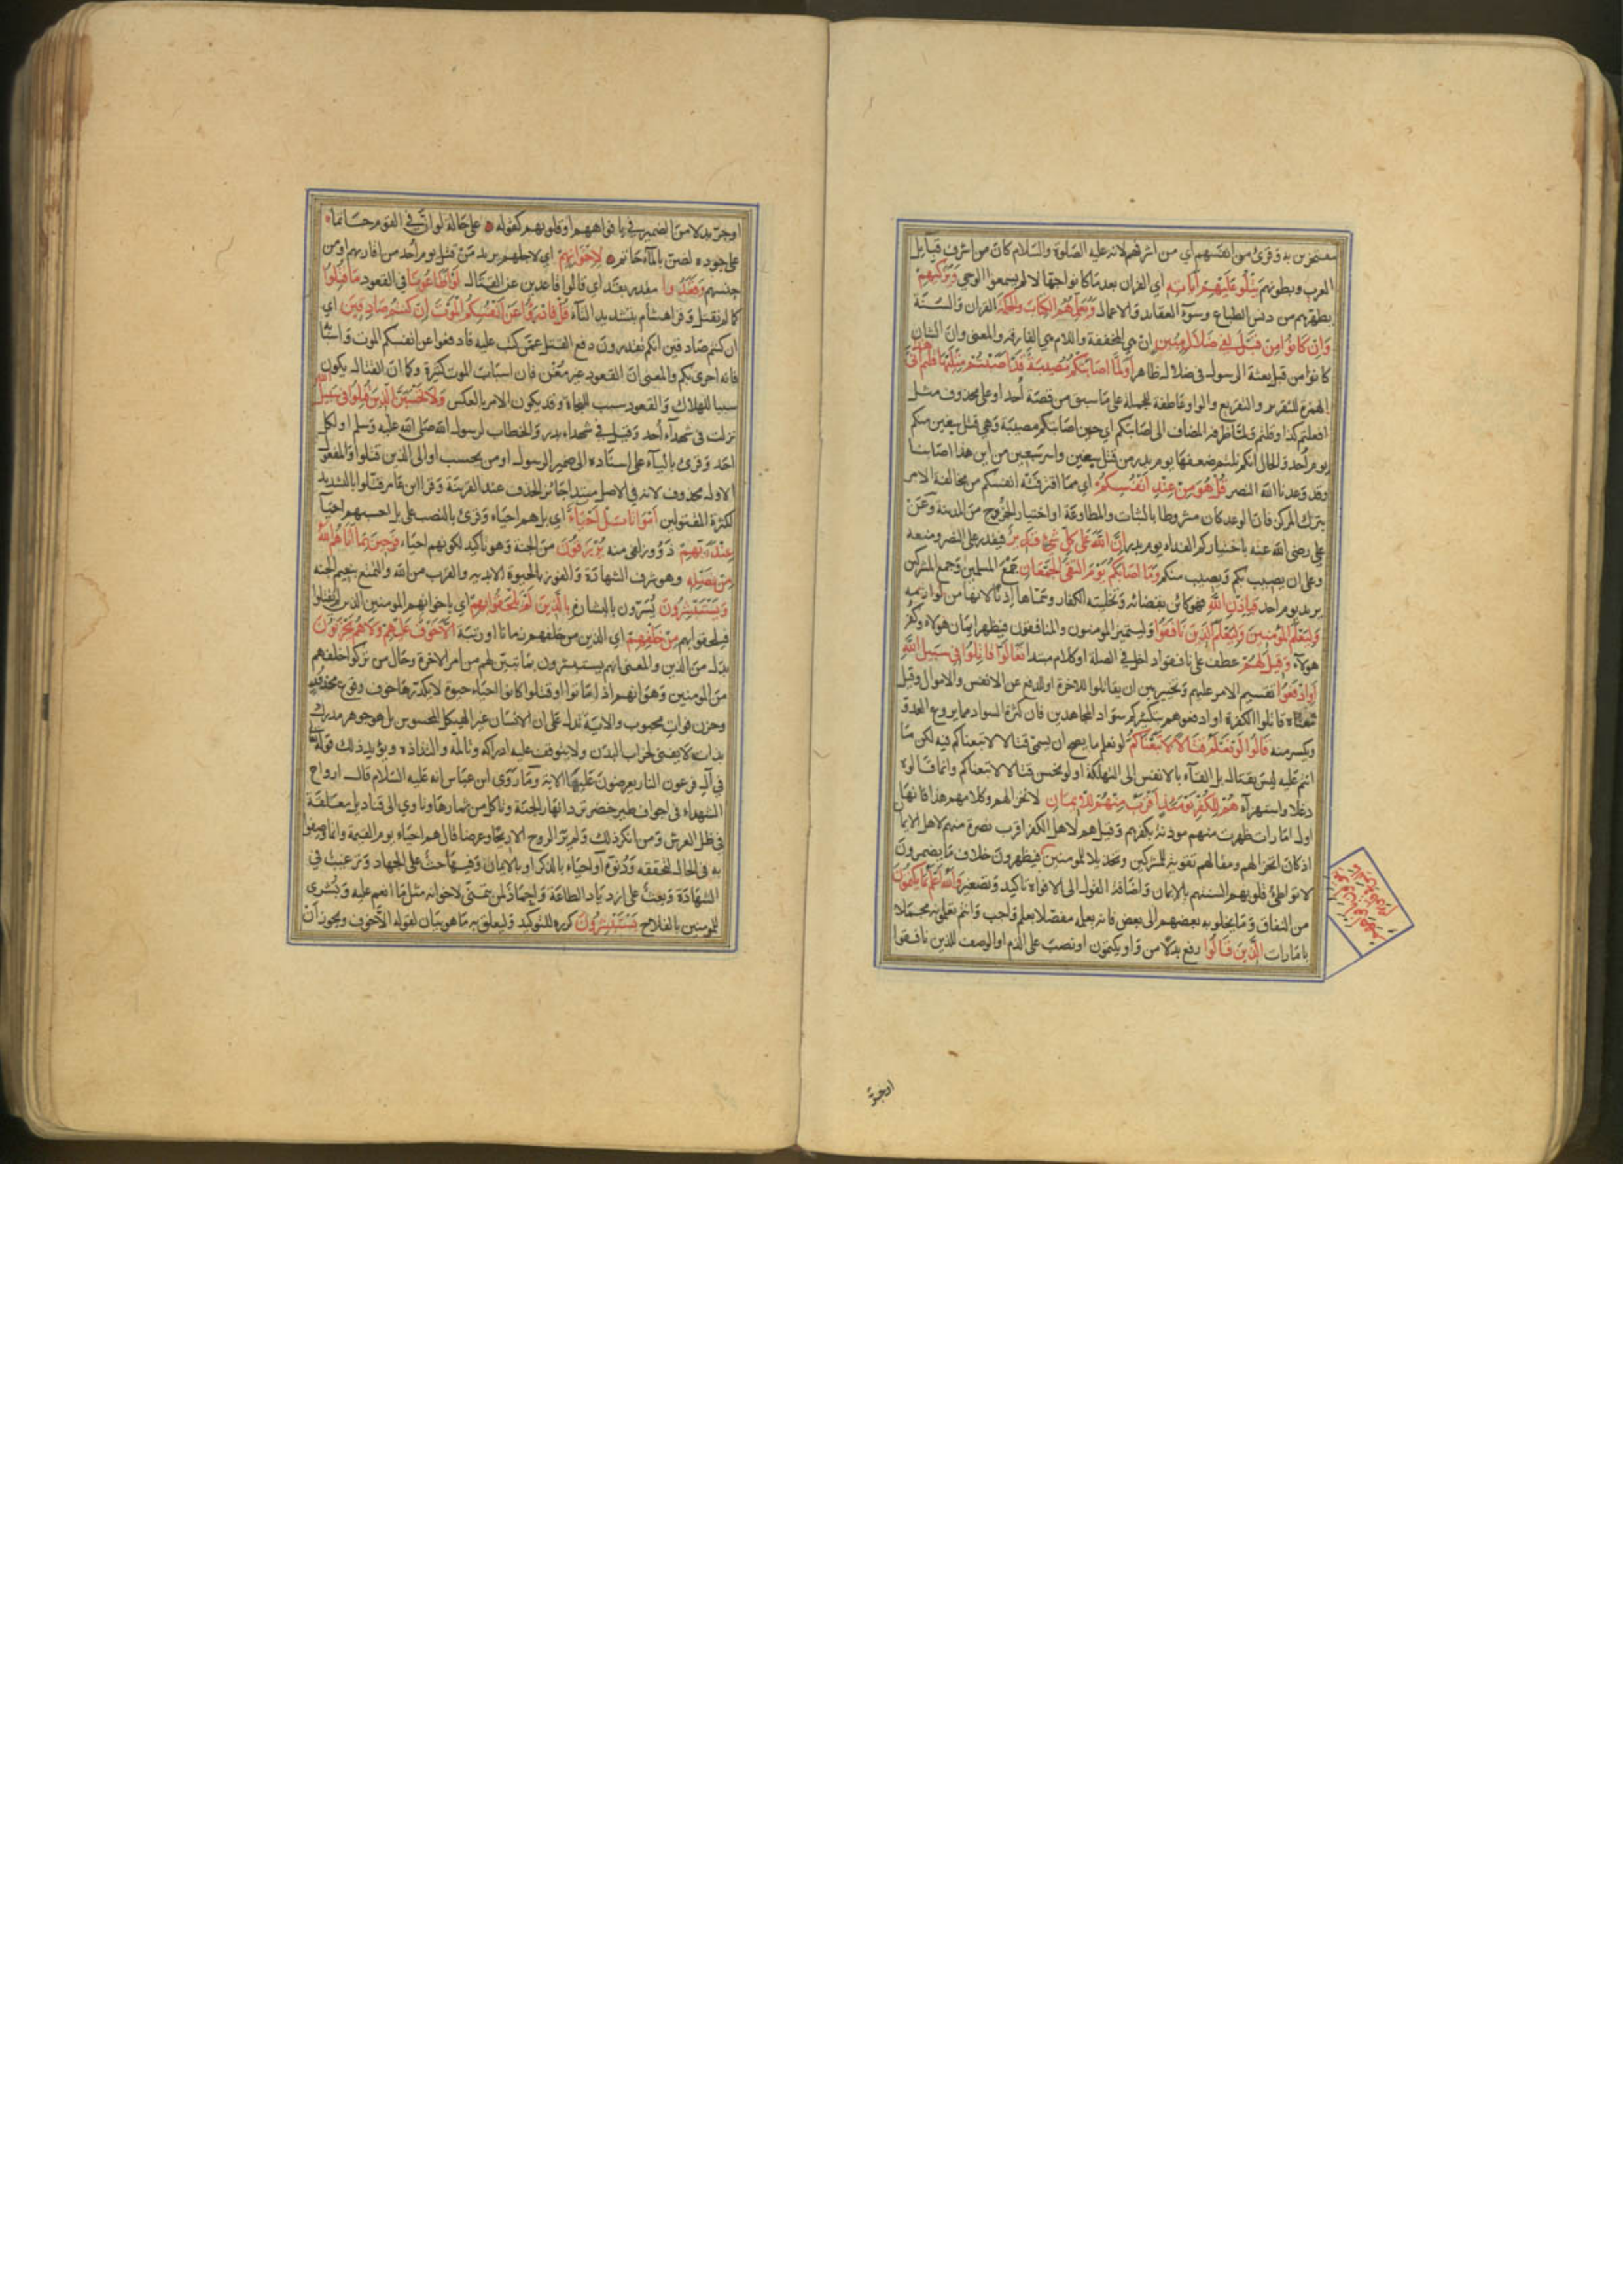 مفتخرين به وقرئ من انفسهم اي من اشرفهم لانه عليه الصلوة والسلام كان من اشرف قبايل
العرب وبطونهم يتلو عليهم اياته اي القران بعدما كانوا جهالا لم يسمعوا الوحي ويزكيهم
يطهرهم من دنس الطباع وسوء العقايد والاعمال ويعلمهم الكتاب والحكمة القران والسنة
وان كانوا من قبل لفي ضلال مبين ان هي المخففة واللام هي الفارقة والمعنى وان الشان
كانوا من قبل بعثة الرسول في ضلال ظاهر اولما اصابتكم مصيبة قد اصبتم مثليها قلتم انى هذا
الهمزة للتقرير والتقريع والواو عاطفة للجملة على ما سبق من قصة أحد او على محذوف مثل
افعلتم كذا وقلتم ولما ظرفه المضاف الى اصابتكم اي حين اصابتكم مصيبة وهي قتل سبعين منكم
يوم أحد والحال انكم نلتم ضعفها يوم بدر من قتل سبعين واسر سبعين من اين هذا اصابنا
وقد وعدنا الله النصر قل هو من عند انفسكم اي مما اقترفته انفسكم من مخالفة الامر
بترك المركز فان الوعد كان مشروطا بالثبات والمطاوعة او اختيار الخروج من المدينة وعن
علي رضي الله عنه باختياركم الفداء يوم بدر ان الله على كل شئ قدير فيقدر على النصر ومنعه
وعلى ان يصيب بكم ويصيب منكم وما اصابكم يوم التقى الجمعان جمع المسلمين وجمع المشركين
يريد يوم احد فباذن الله فهو كائن بقضائه وتخليته الكفار وسماها إذنا لانها من لوازمه
وليعلم المومنين وليعلم الذين نافقوا وليتميز المومنون والمنافقون فيظهر ايمان هولاء وكفر
هولاء وقيل لهم عطف على نافقوا داخل في الصلة او كلام مبتدا تعالوا قاتلوا في سبيل الله
اوادفعوا تقسيم الامر عليهم وتخييرهم بين ان يقاتلوا للاخرة او للدفع عن الانفس والاموال وقيل
معناه قاتلوا الكفرة او ادفعوهم بتكثيركم سواد المجاهدين فان كثرة السواد مما يروع العدو
ويكسر منه قالوا لو نعلم قتالا لاتبعناكم لو نعلم ما يصح ان يسمى قتالا لاتبعناكم فيه لكن ما
انتم عليه ليس بقتال بل القاء بالانفس الى التهلكة او لو نحسن قتالا لاتبعناكم وانما قالوه
دغلا واستهزاء هم للكفر يومئذ اقرب منهم للايمان لانخزالهم وكلامهم هذا فانهما
اول امارات ظهرت منهم موذنة بكفرهم وقيل هم لاهل الكفر اقرب نصرة منهم لاهل الايمان
اذ كان انخزالهم ومقالهم تقوية للمشركين وتخذيلا للمومنين فيظهرون خلاف ما يضمرون
لا تواطئ قلوبهم السنتهم بالايمان واضافة القول الى الافواه تاكيد وتصغير والله اعلم بما يكتمون
من النفاق وما يخلو به بعضهم الى بعض فانه يعلمه مفصلا بعلم واجب وانتم تعلمونه مجملا
بامارات الذين قالوا رفع بدلا من واو يكتمون او نصب على الذم او الوصف للذين نافقوا
يقولون بافواههم ما ليس في قلوبهم
او جر
او جر بدلا من الضمير في بافواههم او قلوبهم كقوله على حالة لو ان في القوم حاتما
على جوده لضن بالماء حاتم لاخوانهم اي لاجلهم يريد من قتل يوم أحد من اقاربهم او من
جنسهم وقعدوا مقدر بقد اي قالوا قاعدين عن القتال لو اطاعونا في القعود ما قتلوا
كما لم نقتل وقرا هشام بتشديد التاء قل فادرؤا عن انفسكم الموت ان كنتم صادقين اي
ان كنتم صادقين انكم تقدرون دفع القتل عمن كتب عليه فادفعوا عن انفسكم الموت واسبابه
فانه احرى بكم والمعنى ان القعود غير مغن فان اسباب الموت كثيرة وكما ان القتال يكون
سببا للهلاك والقعود سبب النجاة وقد يكون الامر بالعكس ولا تحسبن الذين قتلوا في سبيل الله
نزلت في شهداء أحد وقيل في شهداء بدر والخطاب لرسول الله صلى الله عليه وسلم او لكل
احد وقرئ بالياء على اسناده الى ضمير الرسول او من يحسب او الى الذين قتلوا والمفعول
الاول محذوف لانه في الاصل مبتدا جائز الحذف عند القرينة وقرا ابن عامر قتلوا بالتشديد
لكثرة المقتولين امواتا بل احياء اي بل هم احياء وقرئ بالنصب على بل احسبهم احياء
عند ربهم ذوو زلفى منه يرزقون من الجنة وهو تاكيد لكونهم احياء فرحين بما اتاهم الله
من فضله وهو شرف الشهادة والفوز بالحيوة الابدية والقرب من الله والتمتع بنعيم الجنة
ويستبشرون يسرون بالبشارة بالذين لم يلحقوا بهم اي باخوانهم المومنين الذين لم يقتلوا
فيلحقوا بهم من خلفهم اي الذين من خلفهم زمانا او رتبة الا خوف عليهم ولا هم يحزنون
بدل من الذين والمعنى انهم يستبشرون بما تبين لهم من امر الاخرة وحال من تركوا خلفهم
من المومنين وهو انهم اذا ماتوا او قتلوا كانوا احياء حيوة لا يكدرها خوف وقوع محذور
وحزن فوات محبوب والاية تدل على ان الانسان غير الهيكل المحسوس بل هو جوهر مدرك
بذاته لا يفنى بخراب البدن ولا يتوقف عليه ادراكه وتالمه والتذاذه ويؤيد ذلك قوله تعالى
في آل فرعون النار يعرضون عليها الاية وما روى ابن عباس انه عليه السلام قال ارواح
الشهداء في اجواف طير خضر ترد انهار الجنة وتاكل من ثمارها وتاوي الى قناديل معلقة
في ظل العرش ومن انكر ذلك ولم ير الروح الا ريحا وعرضا قال هم احياء يوم القيمة وانما وصفوا
به في الحال لتحققه ودنوه او احياء بالذكر او بالايمان وفيها حث على الجهاد وترغيب في
الشهادة وبعث على ازدياد الطاعة واحماد لمن يتمنى لاخوانه مثل ما انعم عليه وبشرى
للمومنين بالفلاح يستبشرون كرره للتوكيد وليعلق به ما هو بيان لقوله الا خوف ويجوز ان